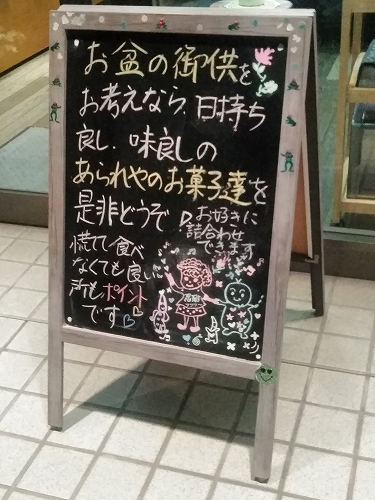 お盆の御供を
お考えなら、日持ち
良し、味良しの
あられやのお菓子達を
是非どうぞ
お好きに
詰合わせ
できます
慌てて食べ
なくても良い
所もポイント
です